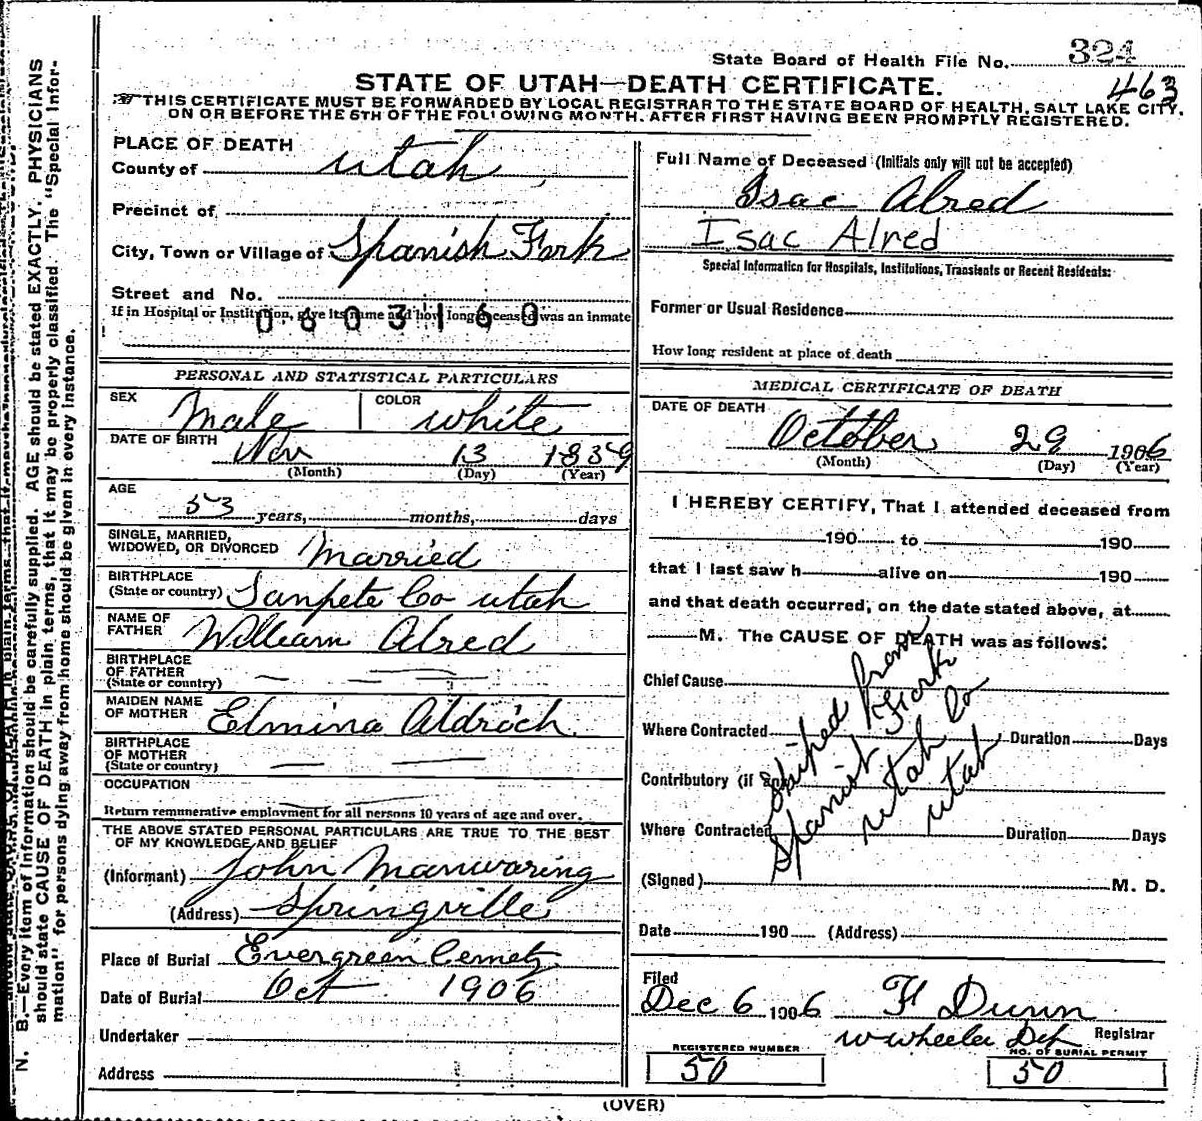 State Board of Health File No. 324
463
STATE OF UTAH—DEATH CERTIFICATE.
THIS CERTIFICATE MUST BE FORWARDED BY LOCAL REGISTRAR TO THE STATE BOARD OF HEALTH, SALT LAKE CITY,
ON OR BEFORE THE 5TH OF THE FOLLOWING MONTH, AFTER FIRST HAVING BEEN PROMPTLY REGISTERED.
PLACE OF DEATH
County of Utah
Precinct of
City, Town or Village of Spanish Fork
Street and No.
If in Hospital or Institution, give its name and how long deceased was an inmate
0603160
PERSONAL AND STATISTICAL PARTICULARS
SEX Male COLOR white
DATE OF BIRTH Nov 13 1839
(Month) (Day) (Year)
AGE
53 years, months, days
SINGLE, MARRIED,
WIDOWED, OR DIVORCED Married
BIRTHPLACE
(State or country) Sanpete Co utah
NAME OF
FATHER William Alred
BIRTHPLACE
OF FATHER
(State or country)
MAIDEN NAME
OF MOTHER Elmina Aldrich
BIRTHPLACE
OF MOTHER
(State or country)
OCCUPATION
Return remunerative employment for all persons 10 years of age and over.
THE ABOVE STATED PERSONAL PARTICULARS ARE TRUE TO THE BEST
OF MY KNOWLEDGE AND BELIEF
(Informant) John Manwaring
(Address) Springville
Place of Burial Evergreen Cemety
Date of Burial Oct 1906
Undertaker
Address
Full Name of Deceased (Initials only will not be accepted)
Isac Alred
Isac Alred
Special Information for Hospitals, Institutions, Transients or Recent Residents:
Former or Usual Residence
How long resident at place of death
MEDICAL CERTIFICATE OF DEATH
DATE OF DEATH
October 29 1906
(Month) (Day) (Year)
I HEREBY CERTIFY, That I attended deceased from
190 to 190
that I last saw h alive on 190
and that death occurred, on the date stated above, at
M. The CAUSE OF DEATH was as follows:
Chief Cause
Where Contracted Duration Days
Contributory (if any)
Where Contracted Duration Days
Shiped from
Spanish Fork
utah Co
utah
(Signed) M. D.
Date 190 (Address)
Filed
Dec 6 1906 F Dunn
W Wheeler Dep Registrar
REGISTERED NUMBER
50
NO. OF BURIAL PERMIT
50
(OVER)
N. B.—Every item of information should be carefully supplied. AGE should be stated EXACTLY. PHYSICIANS
should state CAUSE OF DEATH in plain terms, that it may be properly classified. The "Special Infor-
mation" for persons dying away from home should be given in every instance.